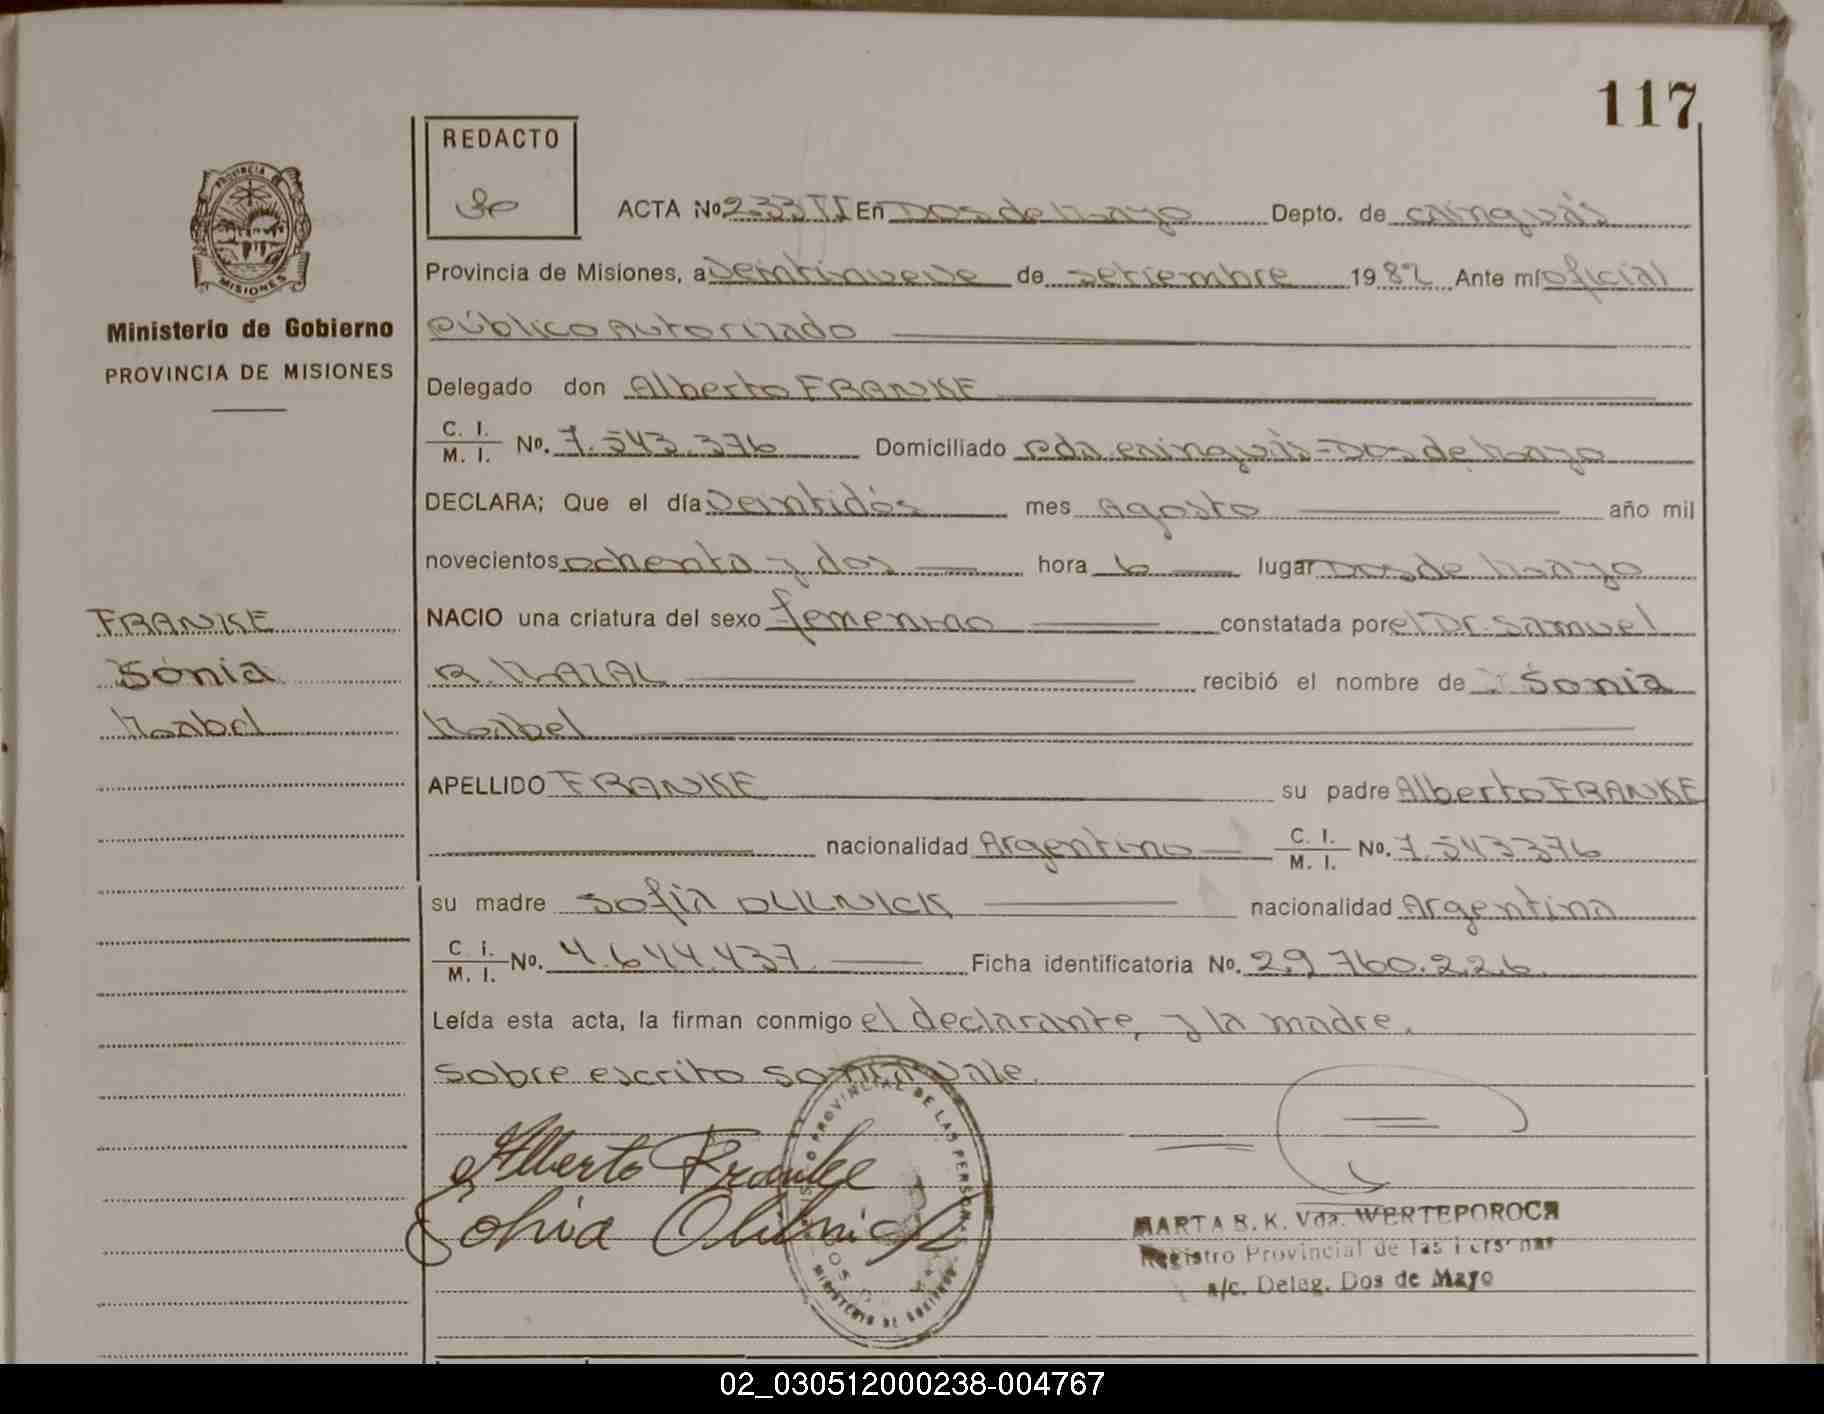 117
REDACTO
ACTA No 233 TI En Dos de Mayo Depto. de Cainguás
PROVINCIA DE MISIONES
Provincia de Misiones, a veintinueve de setiembre 1982 Ante mí oficial
Ministerio de Gobierno
público Autorizado
PROVINCIA DE MISIONES
Delegado don Alberto FRANKE
C. I. / M. I. No. 7.543.376 Domiciliado Pda. Cainguás - Dos de Mayo
DECLARA; Que el día veintidós mes Agosto año mil
novecientos ochenta y dos hora 6 lugar Dos de Mayo
FRANKE
NACIO una criatura del sexo femenino constatada por el Dr. Samuel
Sonia
R. MAZAL recibió el nombre de Sonia
Mabel
Mabel
APELLIDO FRANKE su padre Alberto FRANKE
nacionalidad Argentino C. I. / M. I. No. 7.543376
su madre Sofia OLILNICK nacionalidad Argentina
C. I. / M. I. No. 4.644.437. Ficha identificatoria No. 29 760.226
Leída esta acta, la firman conmigo el declarante, y la madre.
Sobre escrito Sonia Vale.
PROVINCIAL DE LAS PERSONAS
MINISTERIO DE GOBIERNO
Alberto Franke
MARTA B. K. Vda. WERTEPOROCH
Registro Provincial de las Personas
a/c. Deleg. Dos de Mayo
02_030512000238-004767